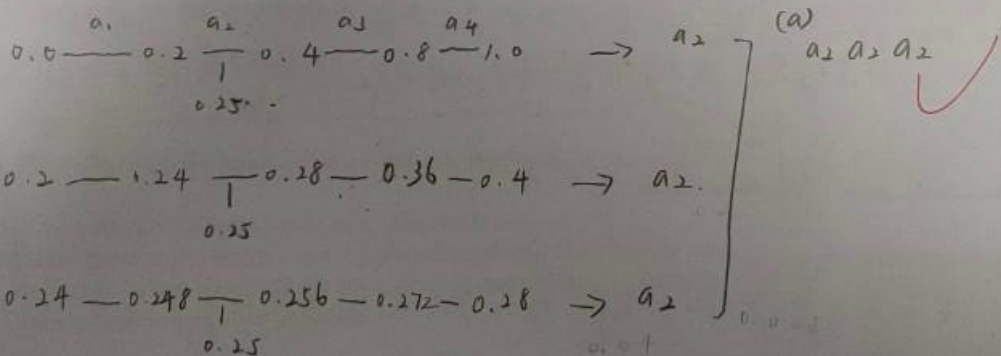 a₁ a₂ a₃ a₄ (a)
0.0 — 0.2 — 0.4 — 0.8 — 1.0 → a₂ a₂ a₂ a₂
0.25
0.2 — 0.24 — 0.28 — 0.36 — 0.4 → a₂.
0.25
0.24 — 0.248 — 0.256 — 0.272 — 0.28 → a₂
0.25